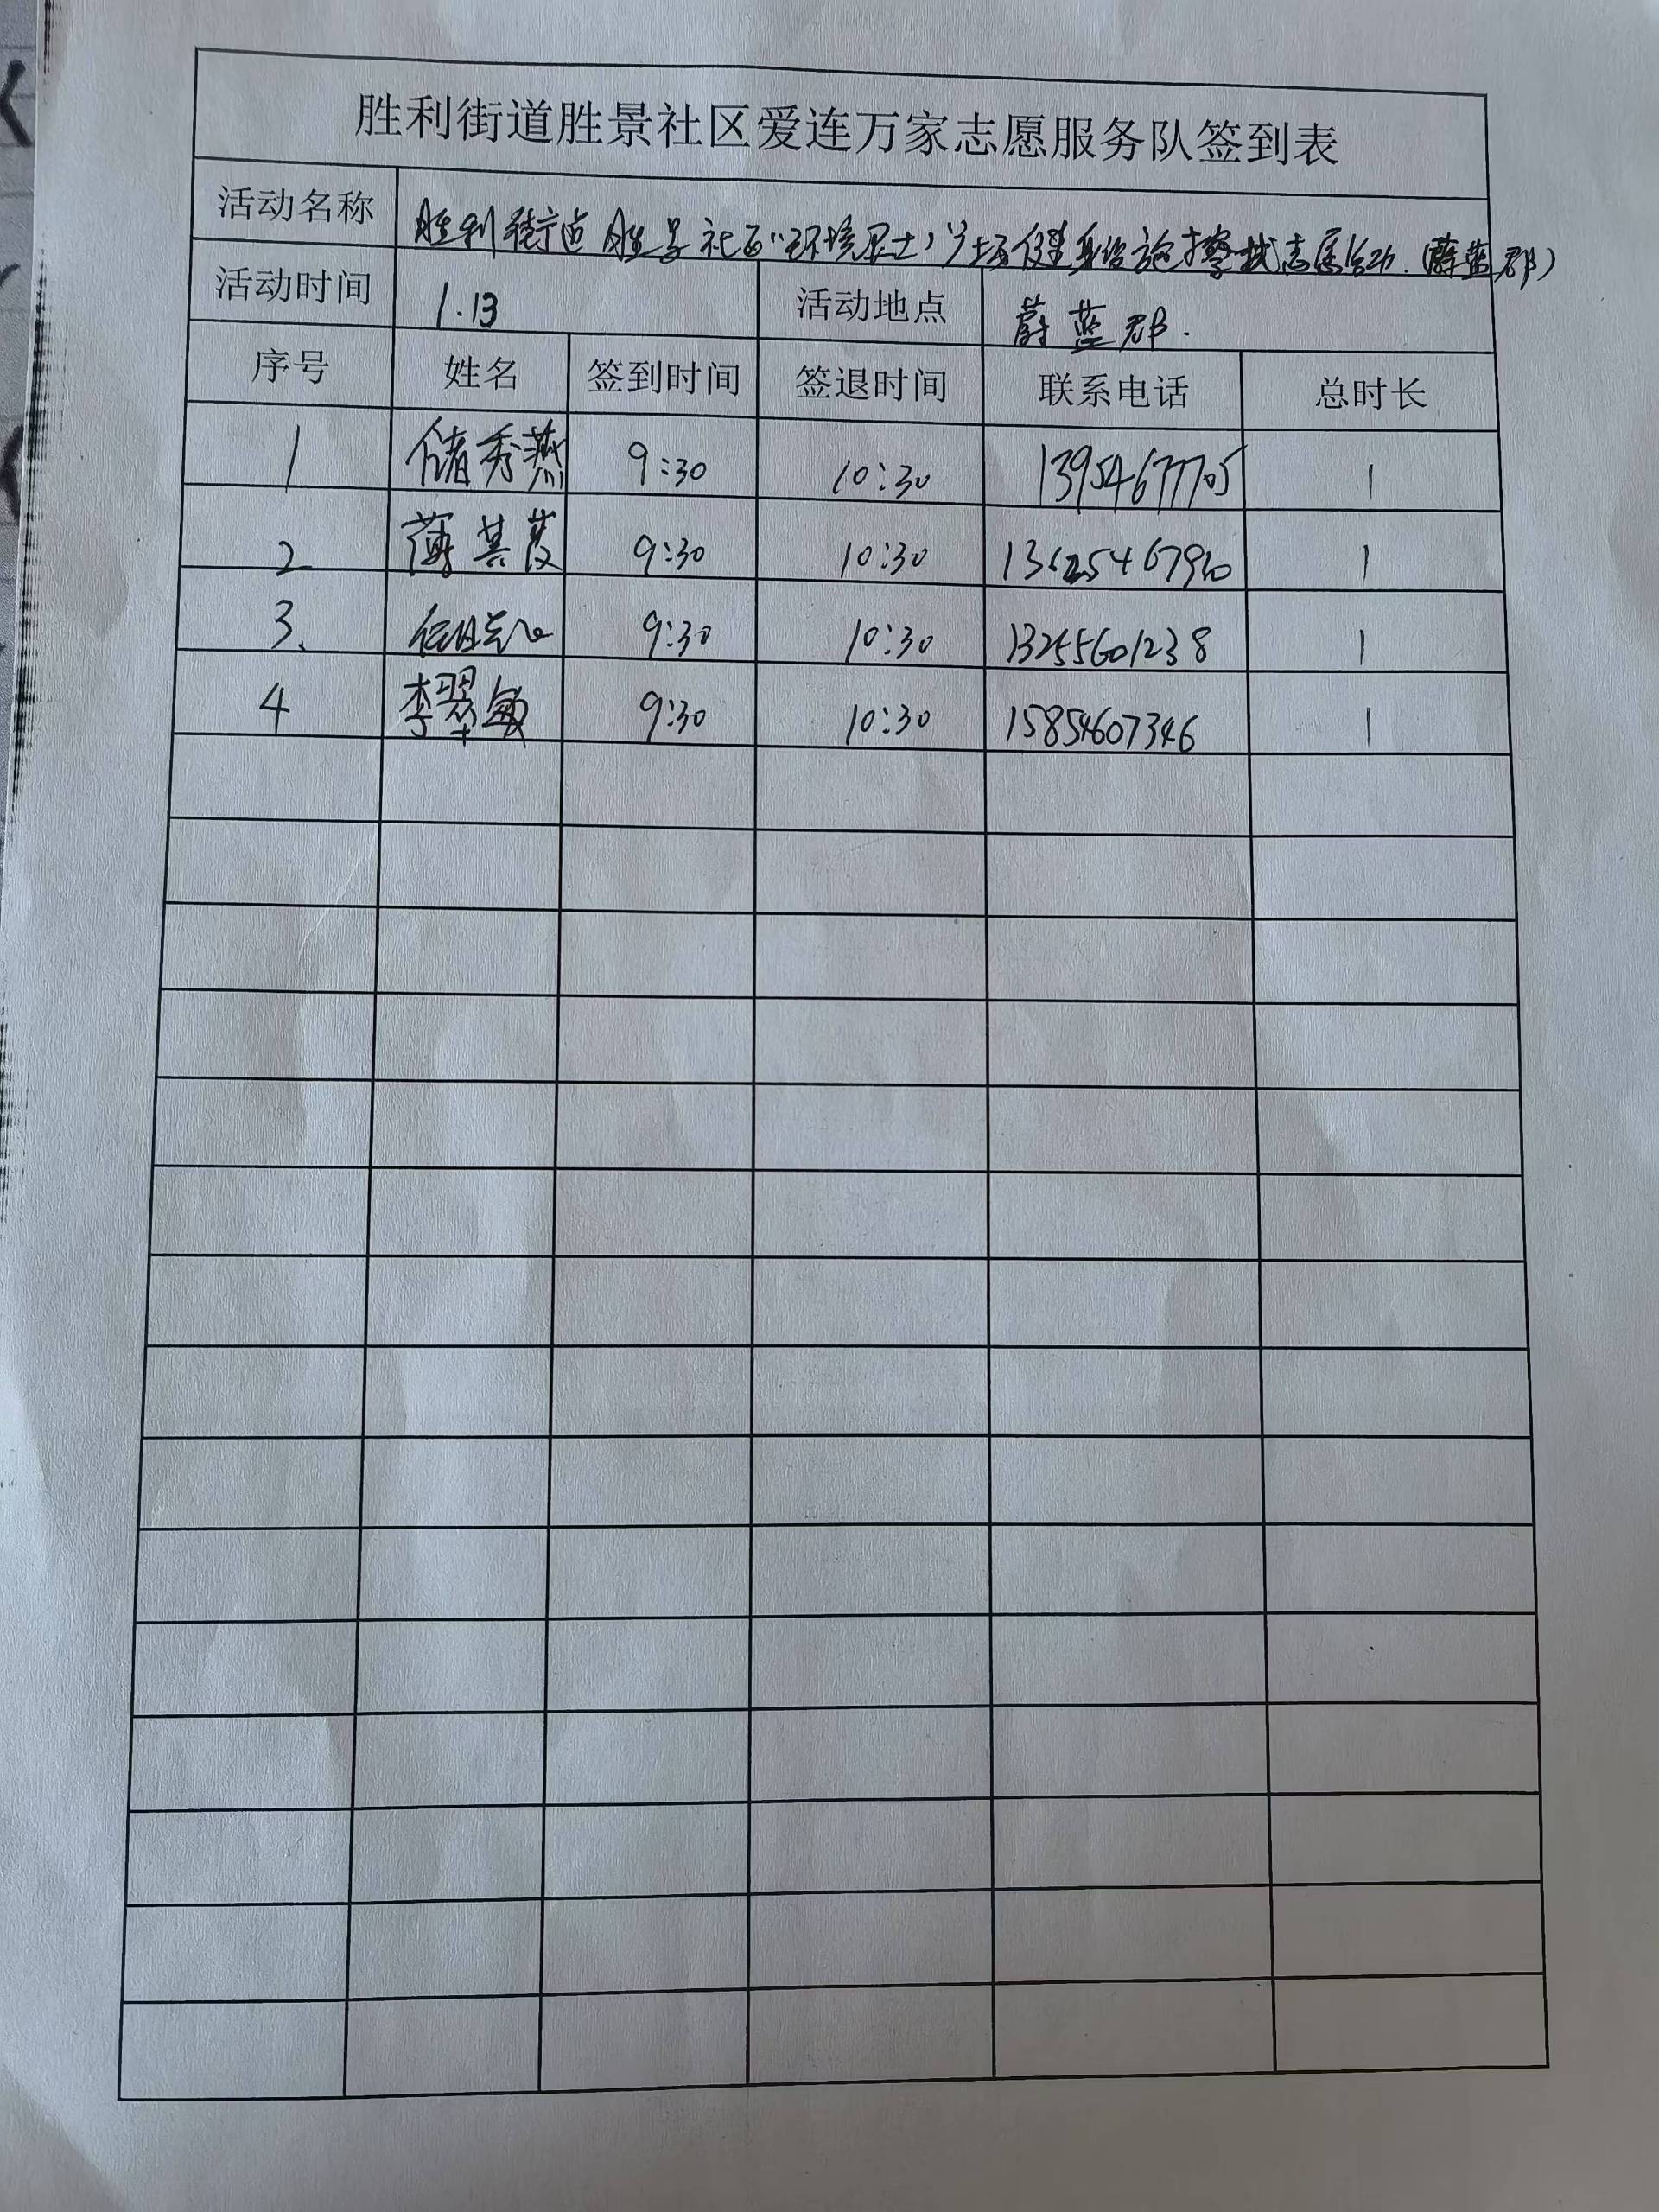 胜利街道胜景社区爱连万家志愿服务队签到表
活动名称 胜利街道胜景社区“环境卫士”广场健身设施擦拭志愿活动.(蔚蓝郡)
活动时间 1.13 活动地点 蔚蓝郡.
序号 姓名 签到时间 签退时间 联系电话 总时长
1 储秀燕 9:30 10:30 13954677705 1
2 薄其霞 9:30 10:30 1
3. 9:30 10:30 13255601238 1
4 李翠敏 9:30 10:30 15854607346 1